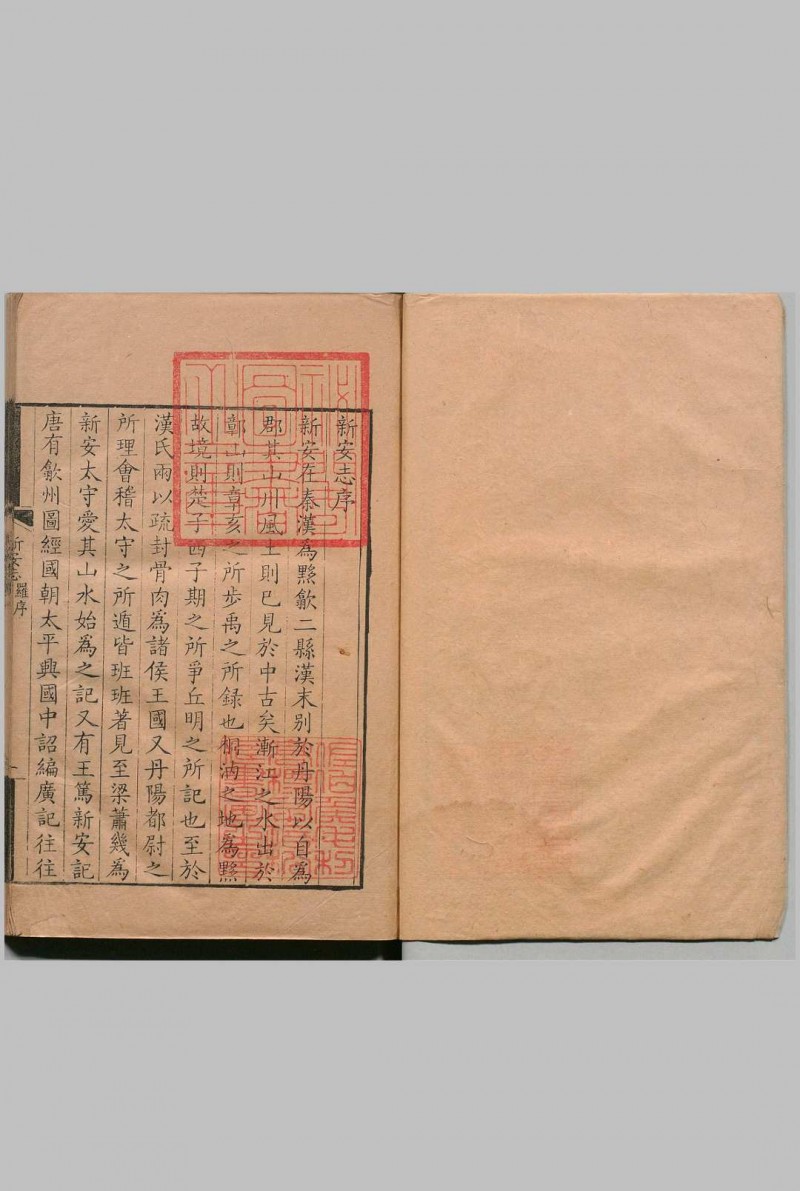 新安志序
新安在秦漢為黟歙二縣漢末別於丹陽以自為
郡其山川風土則已見於中古矣漸江之水出於
鄣山則章亥之所步禹之所録也桐汭之地為黟
故境則楚子西子期之所爭丘明之所記也至於
漢氏兩以疏封骨肉為諸侯王國又丹陽都尉之
所理會稽太守之所遁皆班班著見至梁蕭幾為
新安太守愛其山水始為之記又有王篤新安記
唐有歙州圖經國朝太平興國中詔編廣記往往
新安志
羅序
一